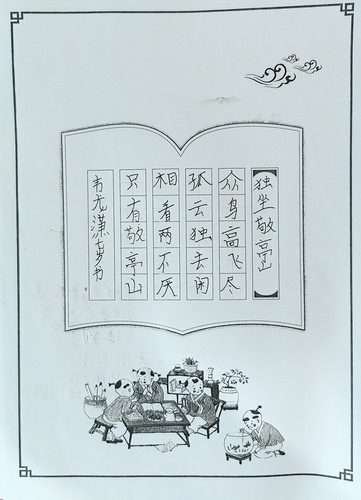 独坐敬亭山
众鸟高飞尽
孤云独去闲
相看两不厌
只有敬亭山
韦尤潇七岁书